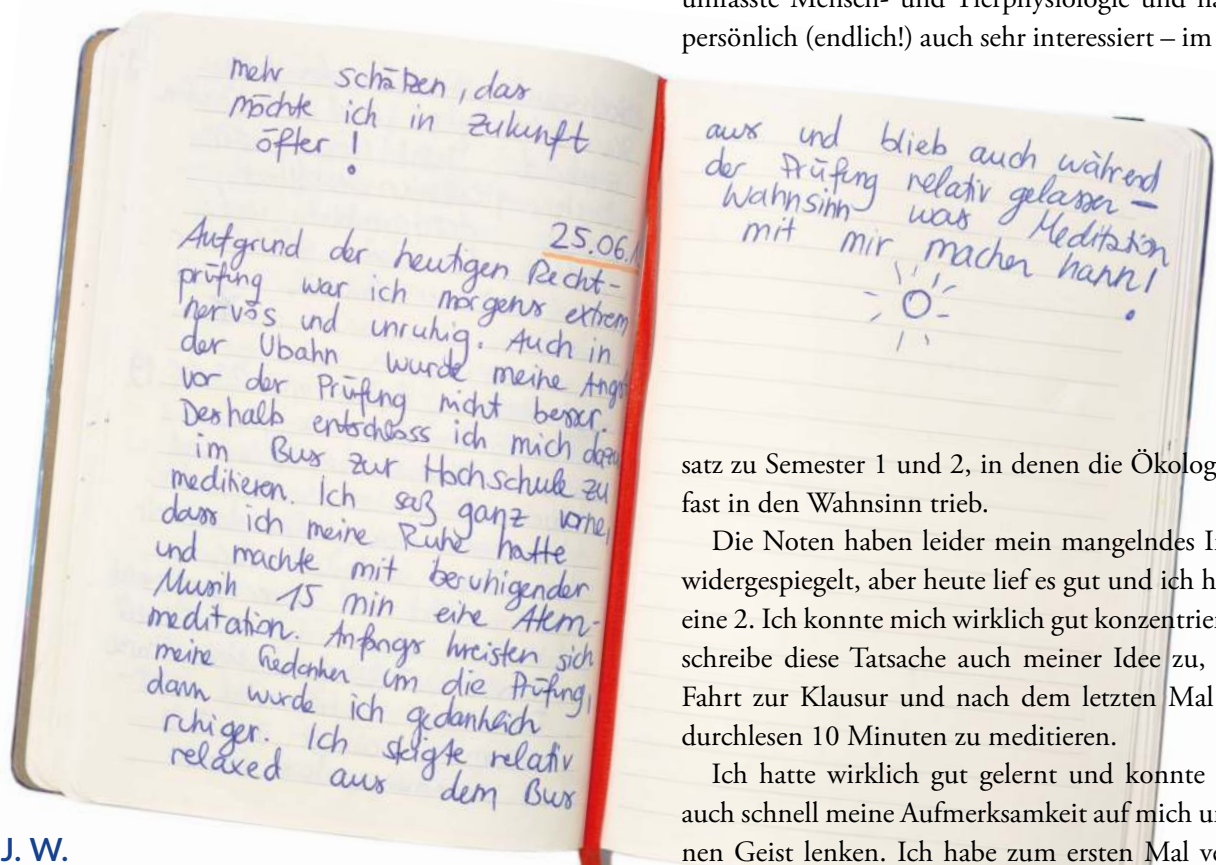 mehr schätzen, das
möchte ich in Zukunft
öfter!
25.06.1
Aufgrund der heutigen Recht-
prüfung war ich morgens extrem
nervös und unruhig. Auch in
der Ubahn wurde meine Angst
vor der Prüfung nicht besser.
Deshalb entschloss ich mich dazu
im Bus zur Hochschule zu
meditieren. Ich saß ganz vorne,
dass ich meine Ruhe hatte
und machte mit beruhigender
Musik 15 min eine Atem-
meditation. Anfangs kreisten sich
meine Gedanken um die Prüfung,
dann wurde ich gedanklich
ruhiger. Ich steigte relativ
relaxed aus dem Bus
aus und blieb auch während
der Prüfung relativ gelassen –
Wahnsinn was Meditation
mit mir machen kann!
J. W.
umfasste Mensch- und Tierphysiologie und
persönlich (endlich!) auch sehr interessiert – im
satz zu Semester 1 und 2, in denen die Ökolog
fast in den Wahnsinn trieb.
Die Noten haben leider mein mangelndes
widergespiegelt, aber heute lief es gut und ich
eine 2. Ich konnte mich wirklich gut konzentrier
schreibe diese Tatsache auch meiner Idee zu,
Fahrt zur Klausur und nach dem letzten Mal
durchlesen 10 Minuten zu meditieren.
Ich hatte wirklich gut gelernt und konnte
auch schnell meine Aufmerksamkeit auf mich
nen Geist lenken. Ich habe zum ersten Mal